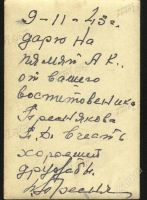 9-11-43 г.
дарю на
память А.К.
от вашего
воспитовенико
Преснякова
П.Д. в честь
хорошей
дружбы.